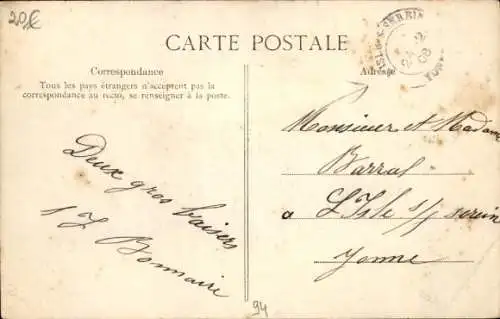 20€
CARTE POSTALE
Correspondance
Tous les pays étrangers n'acceptent pas la
correspondance au recto, se renseigner à la poste.
Adresse
Deux gros baisers
Bonnaire
Monsieur et Madame
Barral
a L'Isle s/s serein
Yonne
94